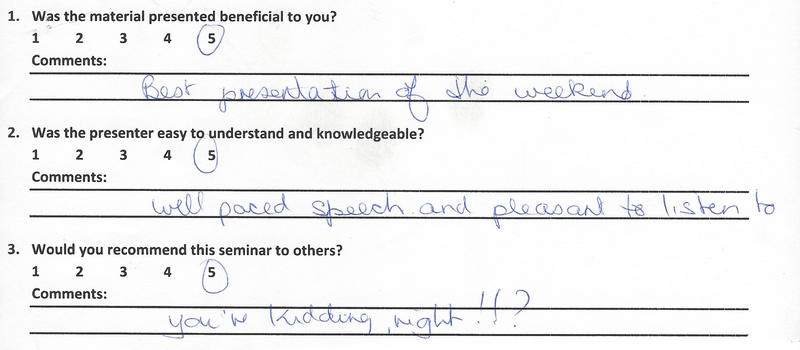 1. Was the material presented beneficial to you?
1 2 3 4 5
Comments:
Best presentation of the weekend.
2. Was the presenter easy to understand and knowledgeable?
1 2 3 4 5
Comments:
well paced speech and pleasant to listen to
3. Would you recommend this seminar to others?
1 2 3 4 5
Comments:
you're kidding, right!!?